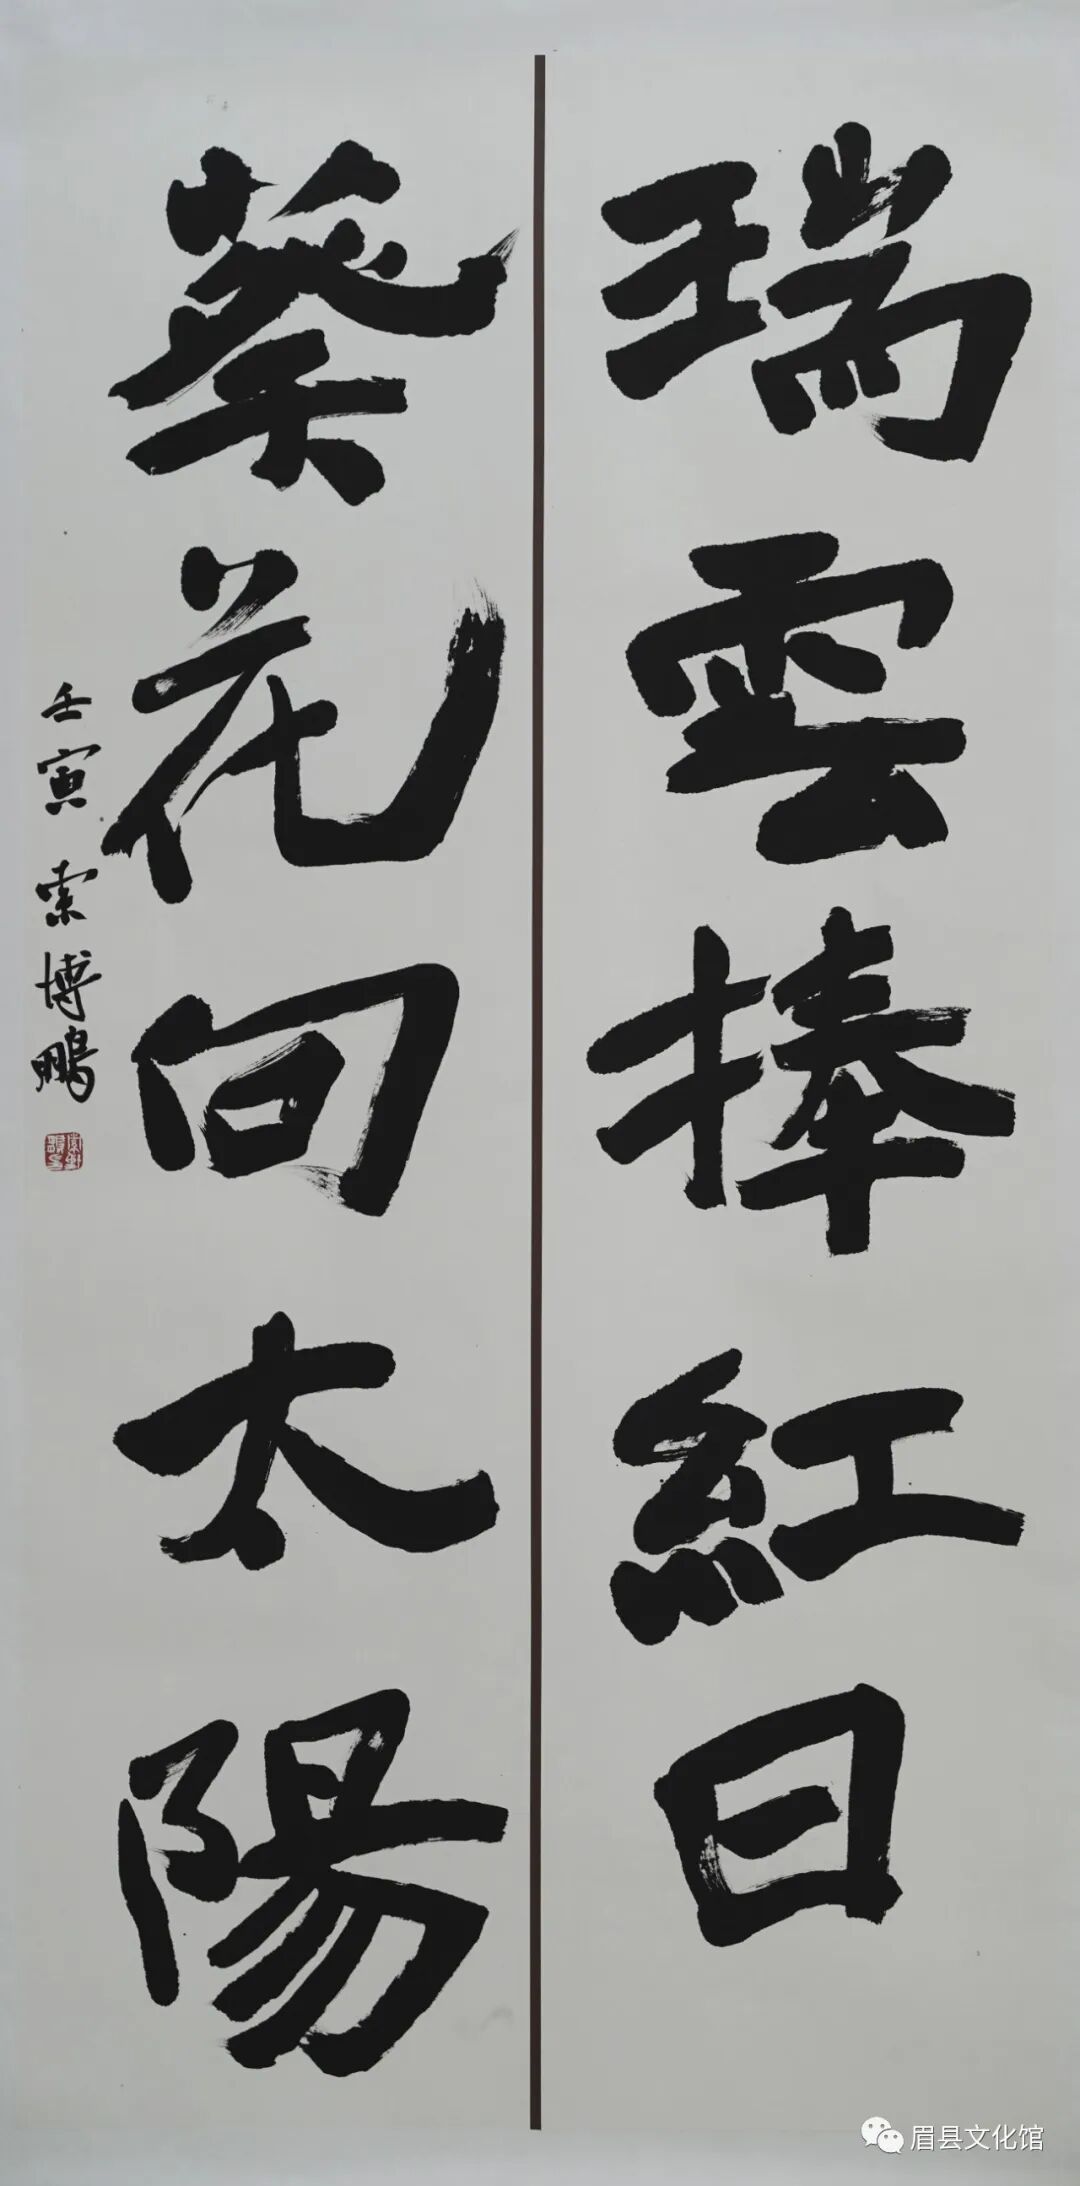 瑞雲捧紅日
葵花向太陽
壬寅 索博鵬
眉县文化馆